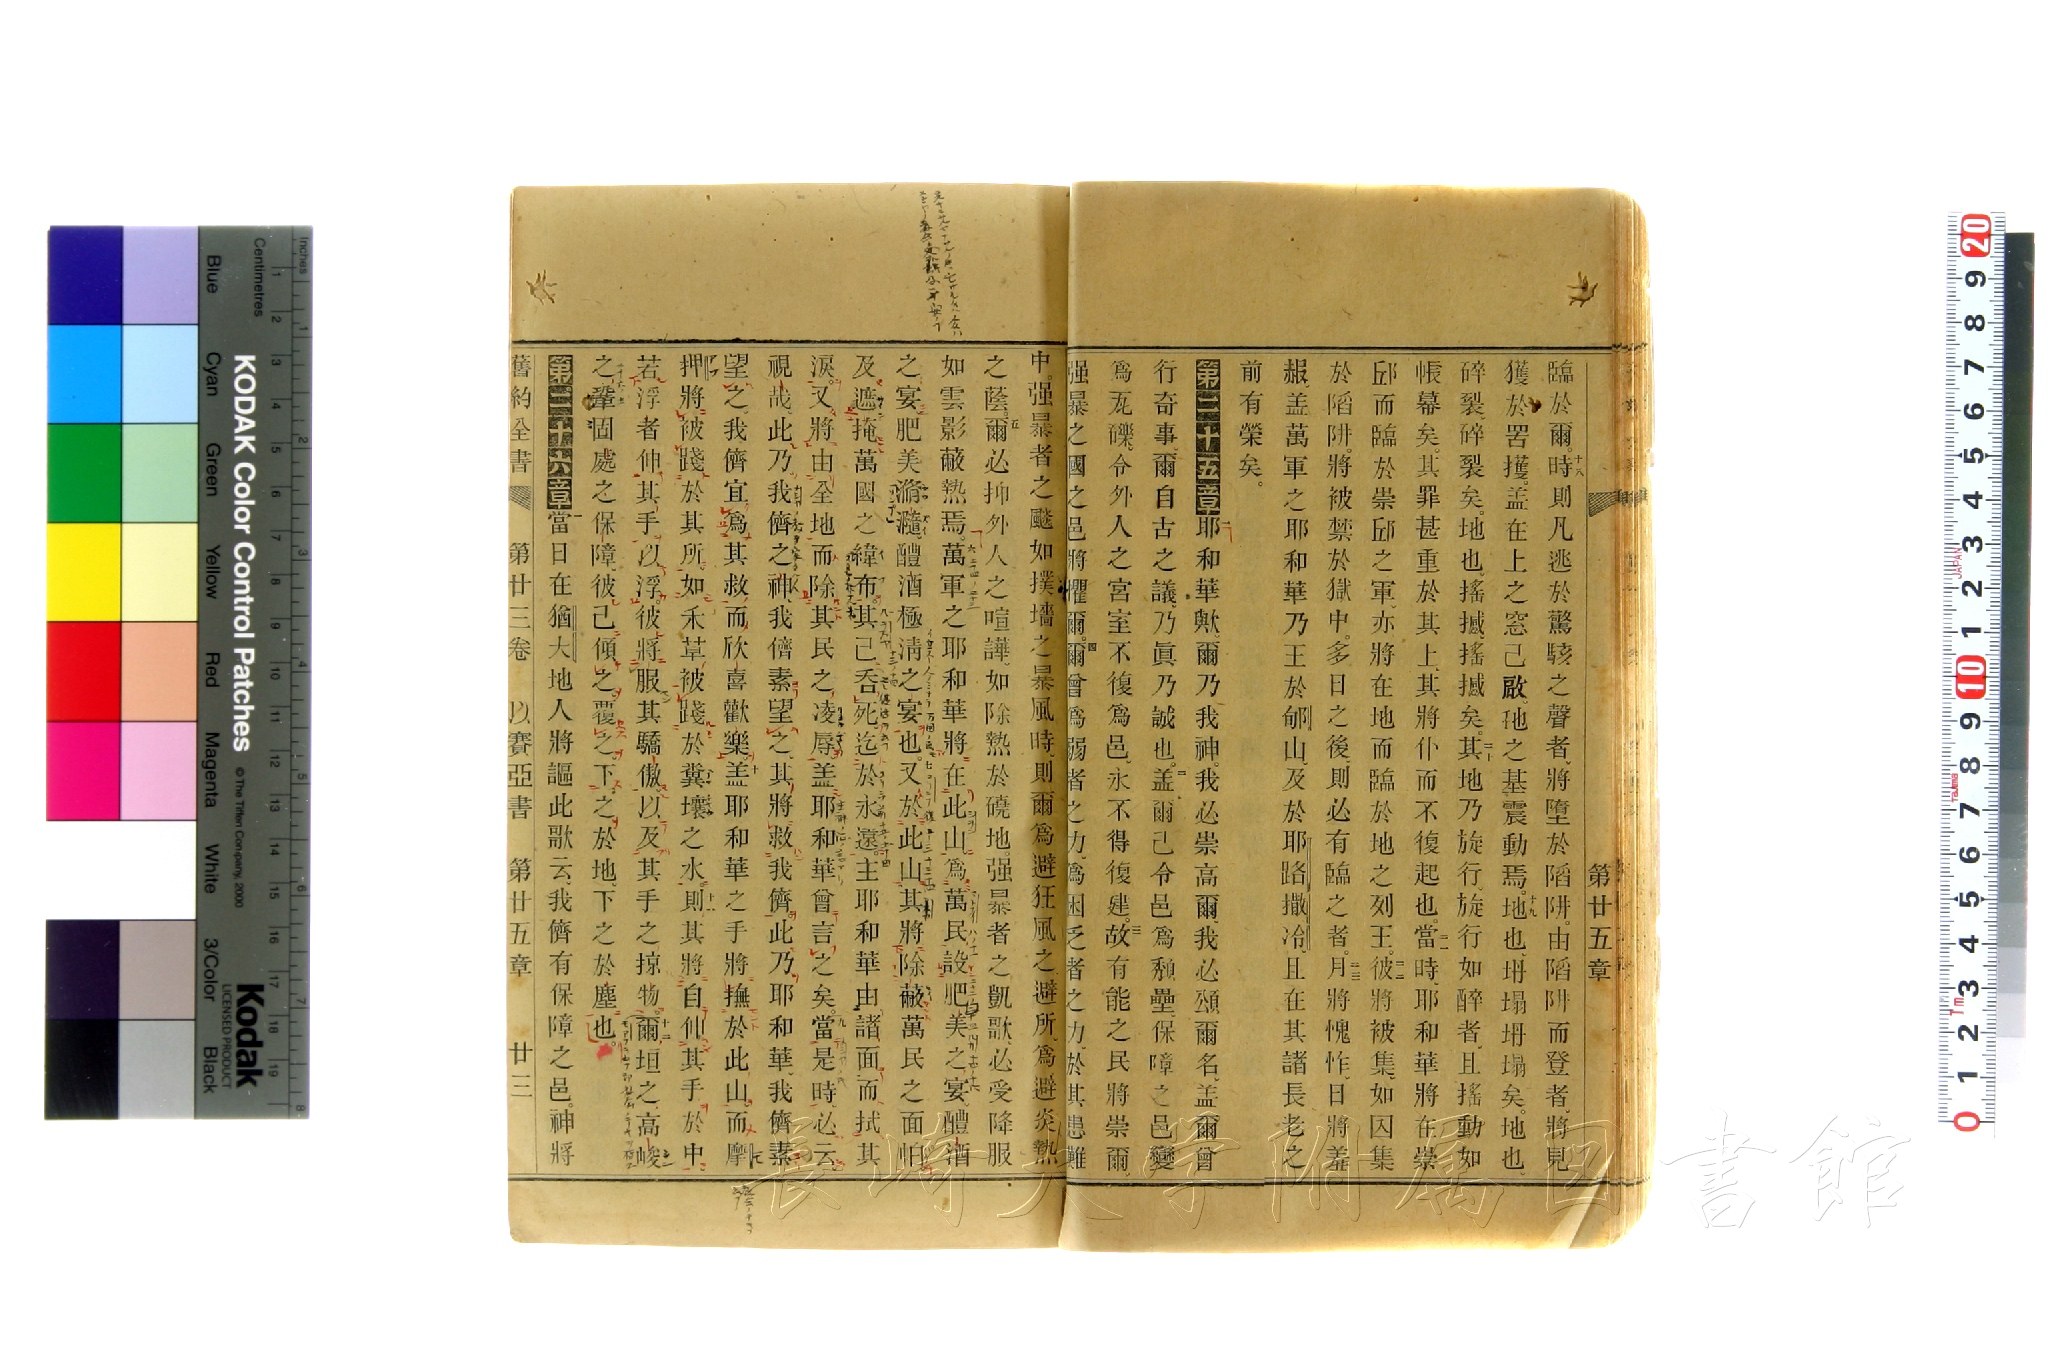 第廿五章
臨於爾。十八時則凡逃於驚駭之聲者、將墮於陷阱、由陷阱而登者、將見
獲於罟擭。蓋在上之窓己啟、地之基震動焉。十九地也、坍塌坍塌矣。地也、
碎裂碎裂矣。地也、搖撼搖撼矣。二十其地乃旋行、旋行如醉者、且搖動如
帳幕矣。其罪甚重於其上、其將仆而不復起也。二一當時、耶和華將在崇
邱而臨於崇邱之軍、亦將在地而臨於地之列王。二二彼將被集、如囚集
於陷阱、將被禁於獄中、多日之後、則必有臨之者。二三月將愧怍、日將羞
赧、蓋萬軍之耶和華乃王於郇山、及於耶路撒冷、且在其諸長老之
前有榮矣。
第二十五章一耶和華歟、爾乃我神、我必崇高爾、我必頌爾名、蓋爾曾
行奇事、爾自古之議、乃眞乃誠也。二蓋爾己令邑爲頹壘、保障之邑變
爲瓦礫、令外人之宮室不復爲邑、永不得復建。三故有能之民將崇爾、
强暴之國之邑將懼爾。四爾曾爲弱者之力、爲困乏者之力、於其患難
中。强暴者之颷如撲墻之暴風時、則爾爲避狂風之避所、爲避炎熱
之蔭。五爾必抑外人之喧譁、如除熱於磽地、强暴者之凱歌、必受降服
如雲影蔽熱焉。六萬軍之耶和華將在此山、爲萬民設肥美之宴、醴酒
之宴、肥美滫瀡、醴酒極清之宴也。七又於此山、其將除蔽萬民之面帕
及遮掩萬國之緯布。八其己吞死迄於永遠。主耶和華由諸面而拭其
淚、又將由全地而除其民之凌辱、蓋耶和華曾言之矣。九當是時、必云
視哉、此乃我儕之神、我儕素望之、其將救我儕、此乃耶和華、我儕素
望之、我儕宜爲其救而欣喜歡樂。十蓋耶和華之手將撫於此山、而摩
押將被踐於其所、如禾草被踐於糞壤之水。十一則其將自伸其手於中
若浮者伸其手以浮、彼將服其驕傲、以及其手之掠物。十二爾垣之高峻
之鞏固處之保障、彼己傾之覆之、下之於地、下之於塵也。
第二十六章一當日在猶大地、人將謳此歌云、我儕有保障之邑、神將
舊約全書 第廿三卷 以賽亞書 第廿五章 廿三
KODAK Color Control Patches
© The Tiffen Company, 2000
Kodak
LICENSED PRODUCT
Inches
Centimetres
Blue Cyan Green Yellow Red Magenta White 3/Color Black
長崎大学附属図書館